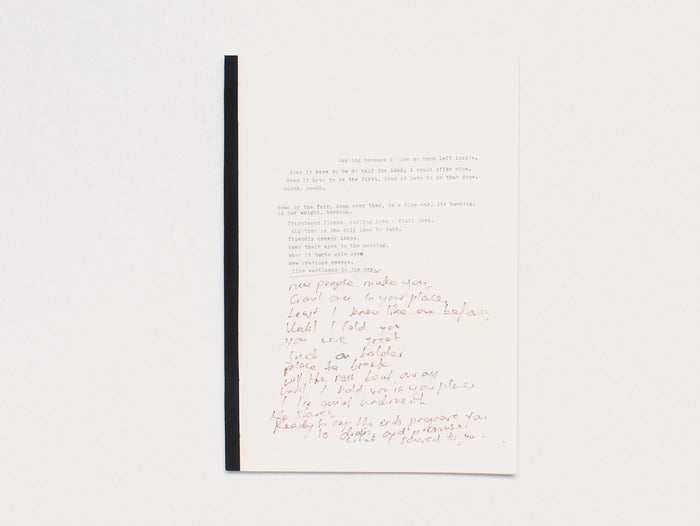 darling because i have so much left inside.
does it have to be do half the land, i could offer mine.
does it have to be the first, does it have to be that done.
ooooh, ooohh.
down by the fair, down over ther, in a blue car, its humming.
in our weight, humming.
frightened flames, curling into a field form.
nighties in the oily lane to dust.
friendly creepy leaps.
open their eyes to the morning.
when it turns wide open
new cravings emerge.
like wastlands to the day.
new people make you
Crawl over in your place,
Least I knew like one before,
Until I told you
you were great
Such a bolder
place to break
will the rest
until I hold you in your place
I lie quiet underneath
Ready to the ends you
to and promise
what I served to you.